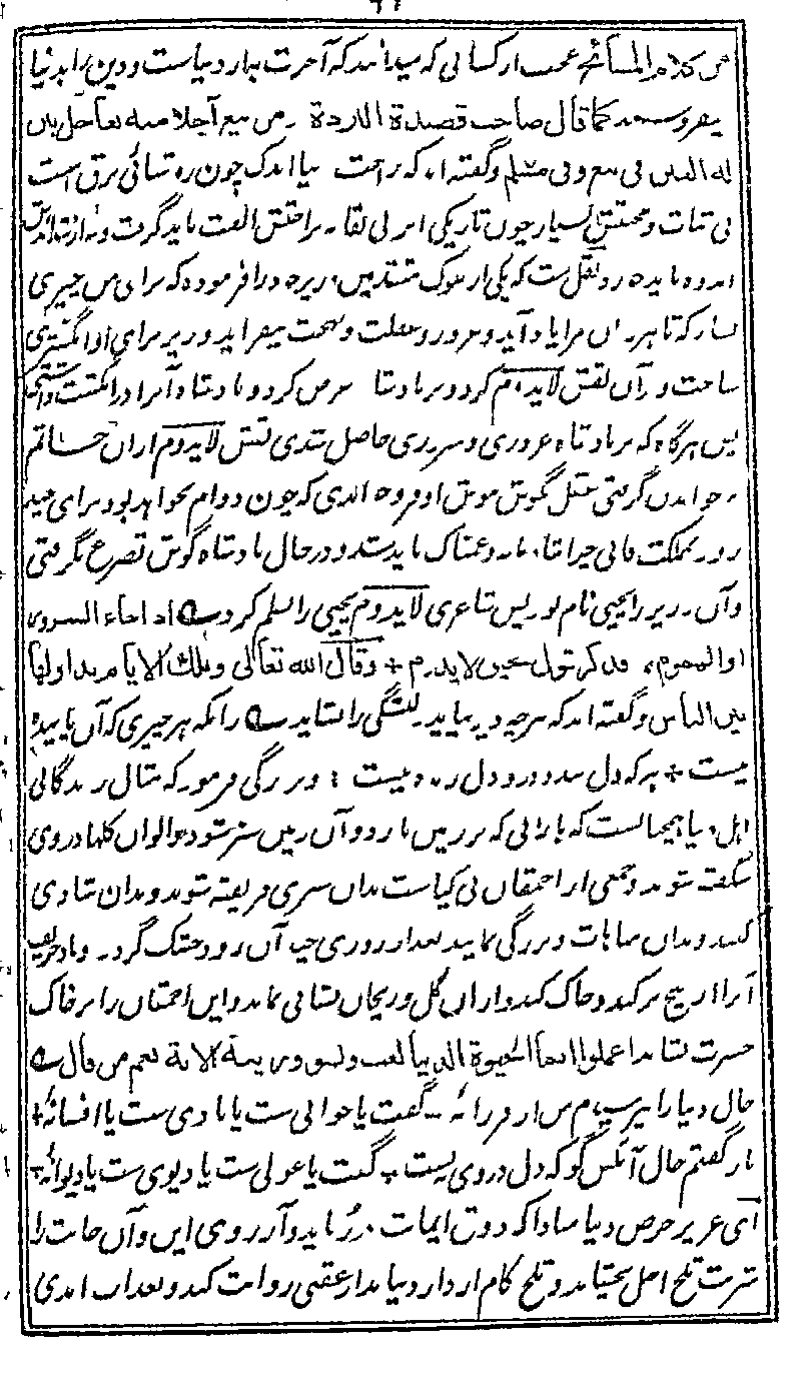 من كلام المشائخ عجب از کسانی که میدانند که آخرت بهتر از دنیاست و دین را بدنیا
میفروشند كما قال صاحب قصيدة البردة ومن يبع آجلا منه بعاجله يبن
له الغبن فى بيع وفى سلم وگفته اند که راحت دنیا اندک چون روشنائی برق است
بی ثبات و محنتش بسیار چون تاریکی ابر بی بقا نه براحتش الفت باید گرفت و نه از
اندوه باید نقل ست که یکی از ملوک متقدمین وزیر خود را فرمود که برای من چیزی
بساز که تا هر مرا یاد آید و غرور و غفلت و نیفزاید وزیر برای او انگشتری
ساخت و بر آن نقش لایدوم کرد و بر بادشاه عرض کرد و بادشاه آنرا در انگشت داشتی
پس هرگاه که بر بادشاه غروری و سروری حاصل شدی نقش لایدوم از آن خاتم
بر خواندن گرفتی بگوش هوش او فرو خواندی که چون دوام نخواهد بود برای چند
روز مملکت فانی چرا شاد و غمناک باید شد و در حال بادشاه گوش تضرع گرفتی
و آن وزیر را یحیی نام بود پس شاعری لایدوم یحیی را نظم کرد اذا جاء السرور
او الهموم فذكر قول يحيى لايدوم + وقال الله تعالى وتلك الايام نداولها
بين الناس وگفته اند که هرچه دیر نیاید دلبستگی را نشاید زانکه هر چیزی که آن پاینده
نیست + هر که دل بندد درو دل زنده نیست + و بزرگی فرمود که مثال زندگانی
اهل دنیا همچنانست که بارانی که بر زمین بارد و آن زمین سبز شود و الوان گلها در وی
شگفته شوند و جمعی از احمقان بی کیاست بدان سبزی فریفته شوند و بدان شادی
کنند و بدان مباهات و بزرگی نمایند بعد از روزی چند آن زود خشک گردد و باد خریف
آنرا از بیخ برکند و خاک کند و از آن گل و ریحان نشانی نماند و این احمقان را بر خاک
حسرت نشاند اعملوا انما الحيوة الدنيا لعب ولهو وزينة الاية نعم من قال
حال دنیا را بپرسیدم من از فرزانهٔ + گفت یا خوابی ست یا بادی ست یا افسانهٔ +
باز گفتم حال آنکس گو که دل در وی ببست + گفت یا غولی ست یا دیوی ست یا دیوانهٔ +
ای عزیز حرص دنیا مبادا که دولت ایمانت برباید و از روی این و آن جانت را
شربت تلخ اجل بچشاند و تلخ کام از دار دنیا بدار عقبی روانت کند و بعذاب ابدی